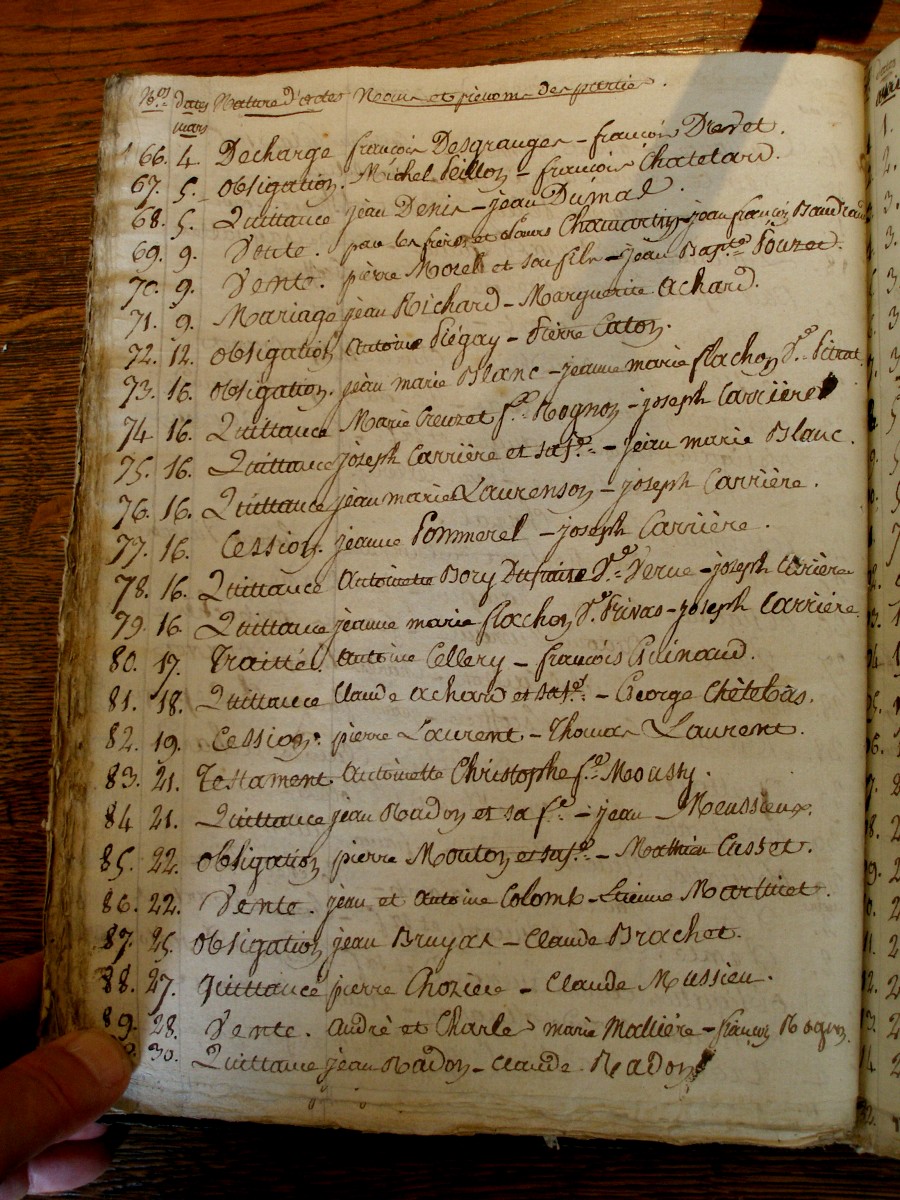 Nos. dates Nature d'actes Noms et prénoms des parties.
mars
66. 4. Decharge françois Desgranges - françois Drevet.
67. 5. obligation. Michel Peillon - françois Chatelard.
68. 5. Quittance jean Denis - jean Dumas.
69. 9. Vente. par les frères et sœurs Chamartin - jean françois
70. 9. Vente. pierre Morel et son fils - jean Bapte. Pouzet.
71. 9. Mariage jean Richard - Marguerite achard.
72. 12. obligation Antoine Piégay - Pierre Caton.
73. 16. obligation. jean marie Blanc - jeanne marie flachon De. Pitrat
74 16. Quittance Marie Creuzet fe. Rognon - joseph Carrière
75. 16. Quittance joseph Carrière et sa fe. - jean marie Blanc.
76. 16. Quittance jean marie Laurenson - joseph Carrière.
77. 16. Cession. jeanne Pommerel - joseph Carrière.
78. 16. Quittance Antoinette Bory De. Verne - joseph Carrière
79. 16. Quittance jeanne marie flachon De. Privas - joseph Carrière.
80. 17. Traitté. Antoine Cellery - françois Guinaud.
81. 18. Quittance Claude achard et sa fe. - George Chètebas.
82. 19. Cession. pierre Laurent - Thomas Laurent.
83. 21. Testament Antoinette Christophe fe. Mousty.
84 21. Quittance jean Radon et sa fe. - jean Meussieux.
85. 22. obligation pierre Mouton et sa fe. - Mathieu Cusset.
86. 22. Vente. jean et Antoine Colomb - Etienne Martinet.
87. 25. obligation jean Bruyas - Claude Brachet.
88. 27. quittance pierre Chozière - Claude Mussieu.
89. 28. Vente. André et Charles marie Mallière - françois Rognon.
30. Quittance jean Radon - Claude Radon